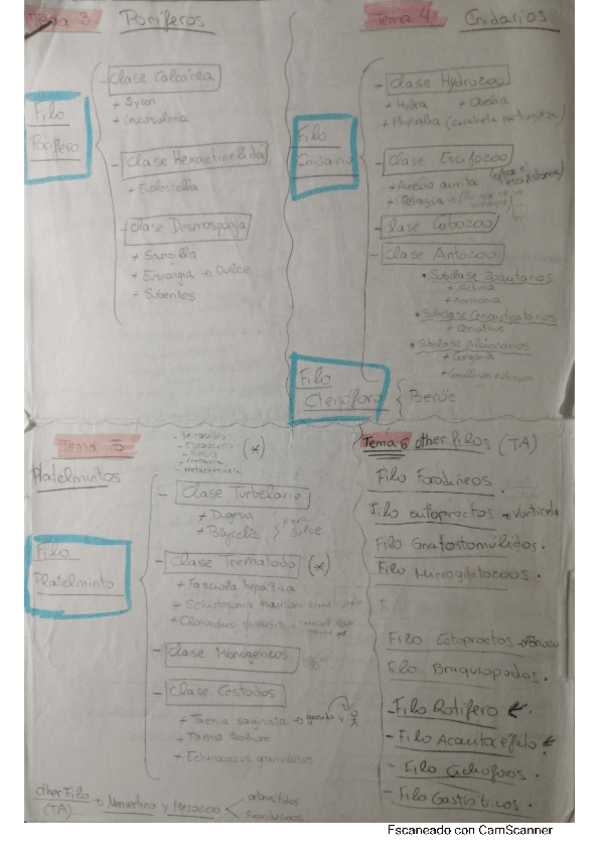 Tema 3 Poríferos
Filo
Porífero
- Clase Calcárea
+ Sycon
+ Leucosolenia
- Clase Hexactinélida
+ Euplectella
- Clase Demosponja
+ Spongilla
+ Euspongia → Dulce
+ Suberites
Tema 4 Cnidarios
Filo
Cnidario
- Clase Hydrozoo
+ Hydra + Obelia
+ Physalia (carabela portuguesa)
- Clase Escifozoo
+ Aurelia aurita
+ Pelagia
- Clase Cubozoo
- Clase Antozoo
• Subclase Zoantarios
+ Actinia
+ Anemonia
• Subclase Ceriantipatarios
+ Cerianthus
• Subclase Alcionarios
+ Gorgonia
+ Corallium rubrum
Filo
Ctenóforo
Beröe
Tema 5
Platelmintos
(*)
Filo
Platelminto
- Clase Turbelario
+ Dugesia
+ Polycelis
Agua dulce
- Clase Trematodo (*)
+ Fasciola hepatica
+ Schistosoma Mansoni
+ Clonorchis sinensis
- Clase Monogéneos
- Clase Cestodos
+ Taenia saginata → ganado y
+ Taenia solium
+ Echinococcus granulosus
other Filo → Nemertino y Mesozoo
(TA)
ortonéctidos
Tema 6 other filos (TA)
Filo Foronídeos
Filo entoproctos → Vorticela
Filo Gnatostomúlidos.
Filo Micrognatozoos.
Filo Ectoproctos →
Filo Braquiopodos.
- Filo Rotífero
- Filo Acantocéfalo
- Filo Ciclióforos.
- Filo Gastrotricos.
Escaneado con CamScanner